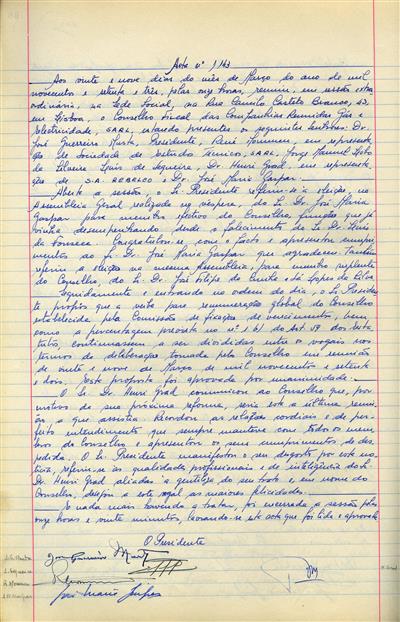 Acta nº 1/43
Aos vinte e nove dias do mês de Março do ano de mil
novecentos e setenta e três, pelas onze horas, reuniu, em sessão extra
ordinária, na Sede Social, na Rua Camilo Castelo Branco, 43,
em Lisboa, o Conselho Fiscal das Companhias Reunidas Gás e
Electricidade, SARL, estando presentes os seguintes Senhores: Dr.
José Guerreiro Murta, Presidente, René Mommen, em represen
tação da Sociedade de Estudos Técnicos, SARL, Jorge Manuel
de Siqueira, Dr. Henri Grad, em representa
ção de S.A. e Dr. José Maria Gaspar.
Aberta a sessão, o Sr. Presidente referiu-se à eleição, na
Assembleia Geral realizada na véspera, do Sr. Dr. José Maria
Gaspar para membro efectivo do Conselho, funções que já
vinha desempenhando desde o falecimento do Sr. Dr. Luís
da Fonseca. Congratulou-se com o facto e apresentou cumpri
mentos ao Sr. Dr. José Maria Gaspar que agradeceu. Também
referiu a eleição na mesma Assembleia, para membro suplente
do Conselho, do Sr. José Filipe da e Sá Lopes da Silva
Seguidamente e entrando na ordem do dia, o Sr. Presiden
te propôs que a verba para remuneração global do Conselho
estabelecida pela Comissão de fixação de vencimentos, bem
como a percentagem prevista no nº 1 b) do Art. 39 dos Esta
tutos, continuassem a ser divididas entre os vogais nos
termos da deliberação tomada pelo Conselho em reunião
de vinte e nove de Março de mil novecentos e setenta
e dois. Esta proposta foi aprovada por unanimidade.
O Sr. Henri Grad comunicou ao Conselho que, por
motivos da sua próxima reforma, seria esta a última reuni
ão a que assistia. Recordou as relações cordiais e de per
feito entendimento que sempre manteve com todos os mem
bros do Conselho e apresentou os seus cumprimentos de des
pedida. O Sr. Presidente manifestou o seu desgosto por esta no
tícia, referiu-se às qualidades profissionais e de inteligência do Sr.
Dr. Henri Grad aliadas à gentileza do seu trato e, em nome do
Conselho, desejou a este vogal as maiores felicidades.
E nada mais havendo a tratar, foi encerrada a sessão pelas
onze horas e vinte minutos, lavrando-se esta acta que foi lida e aprovada
O Presidente
José Guerreiro Murta
José Maria Gaspar